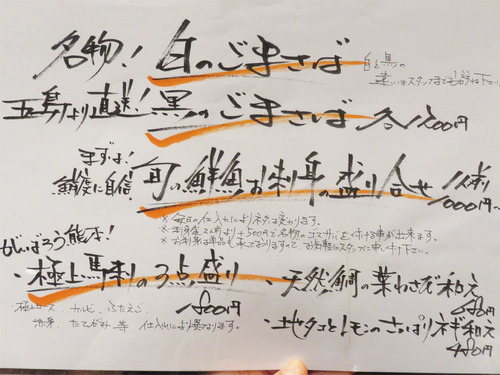 名物! 白のごまさば
白と黒の
違いはスタッフまでお訪ね下さい
五島より直送! 黒のごまさば 各1200円
まずは!
鮮度に自信 旬の鮮魚お刺身の盛り合せ 1人前
1000円〜
※ 毎日の仕入れにより内容変わります。
※ お刺身盛2人前より+500円で名物のゴマサバを付ける事が出来ます。
※ お刺身は単品も承っておりますので、お気軽にスタッフに申し付け下さい。
がんばろう熊本!
・極上馬刺の3点盛り 1800円
極上ロース カルビ、ふたえご、
赤身、たてがみ 等 仕入れにより異なります。
・天然鯛の葉わさび和え
680円
・地タコとレモンのさっぱりネギ和え
480円